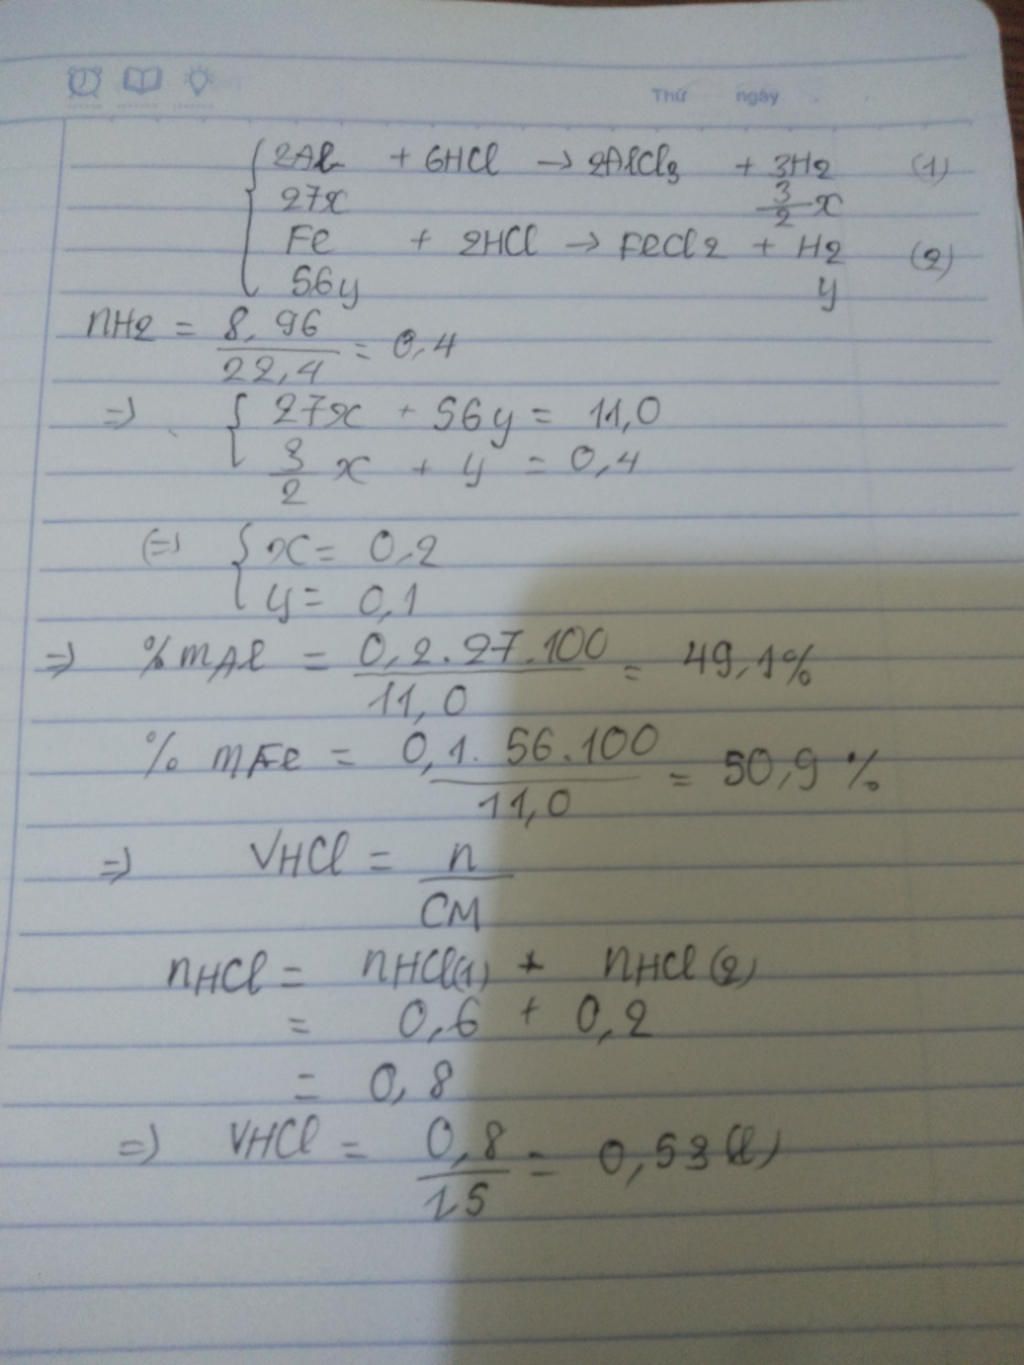 Thứ ngày
2Al + 6HCl → 2AlCl3 + 3H2 (1)
27x 3/2 x
Fe + 2HCl → FeCl2 + H2 (2)
56y y
nH2 = 8,96/22,4 = 0,4
=> { 27x + 56y = 11,0
3/2 x + y = 0,4
(=) { x = 0,2
y = 0,1
=> % mAl = 0,2.27.100/11,0 = 49,1%
% mFe = 0,1.56.100/11,0 = 50,9 %
=> VHCl = n/CM
nHCl = nHCl(1) + nHCl(2)
= 0,6 + 0,2
= 0,8
=> VHCl = 0,8/1,5 = 0,53(l)